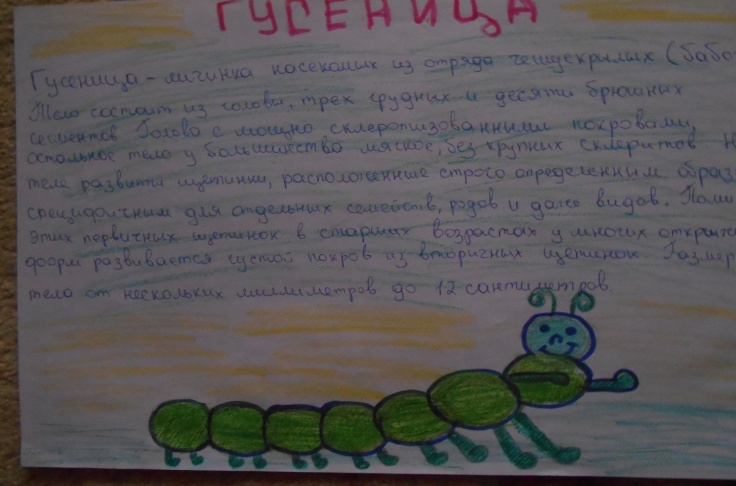 ГУСЕНИЦА
Гусеница - личинка насекомых из отряда чешуекрылых (бабо
Тело состоит из головы, трёх грудных и десяти брюшных
сегментов Голова с мощно склеротизованными покровами,
остальное тело у большинства мягкое, без крупных склеритов Н
теле развиты щетинки, расположенные строго определенным образ
специфичным для отдельных семейств, родов и даже видов. Поми
этих первичных щетинок в старших возрастах у многих открыто
форм развивается густой покров из вторичных щетинок Размер
тела от нескольких миллиметров до 12 сантиметров.